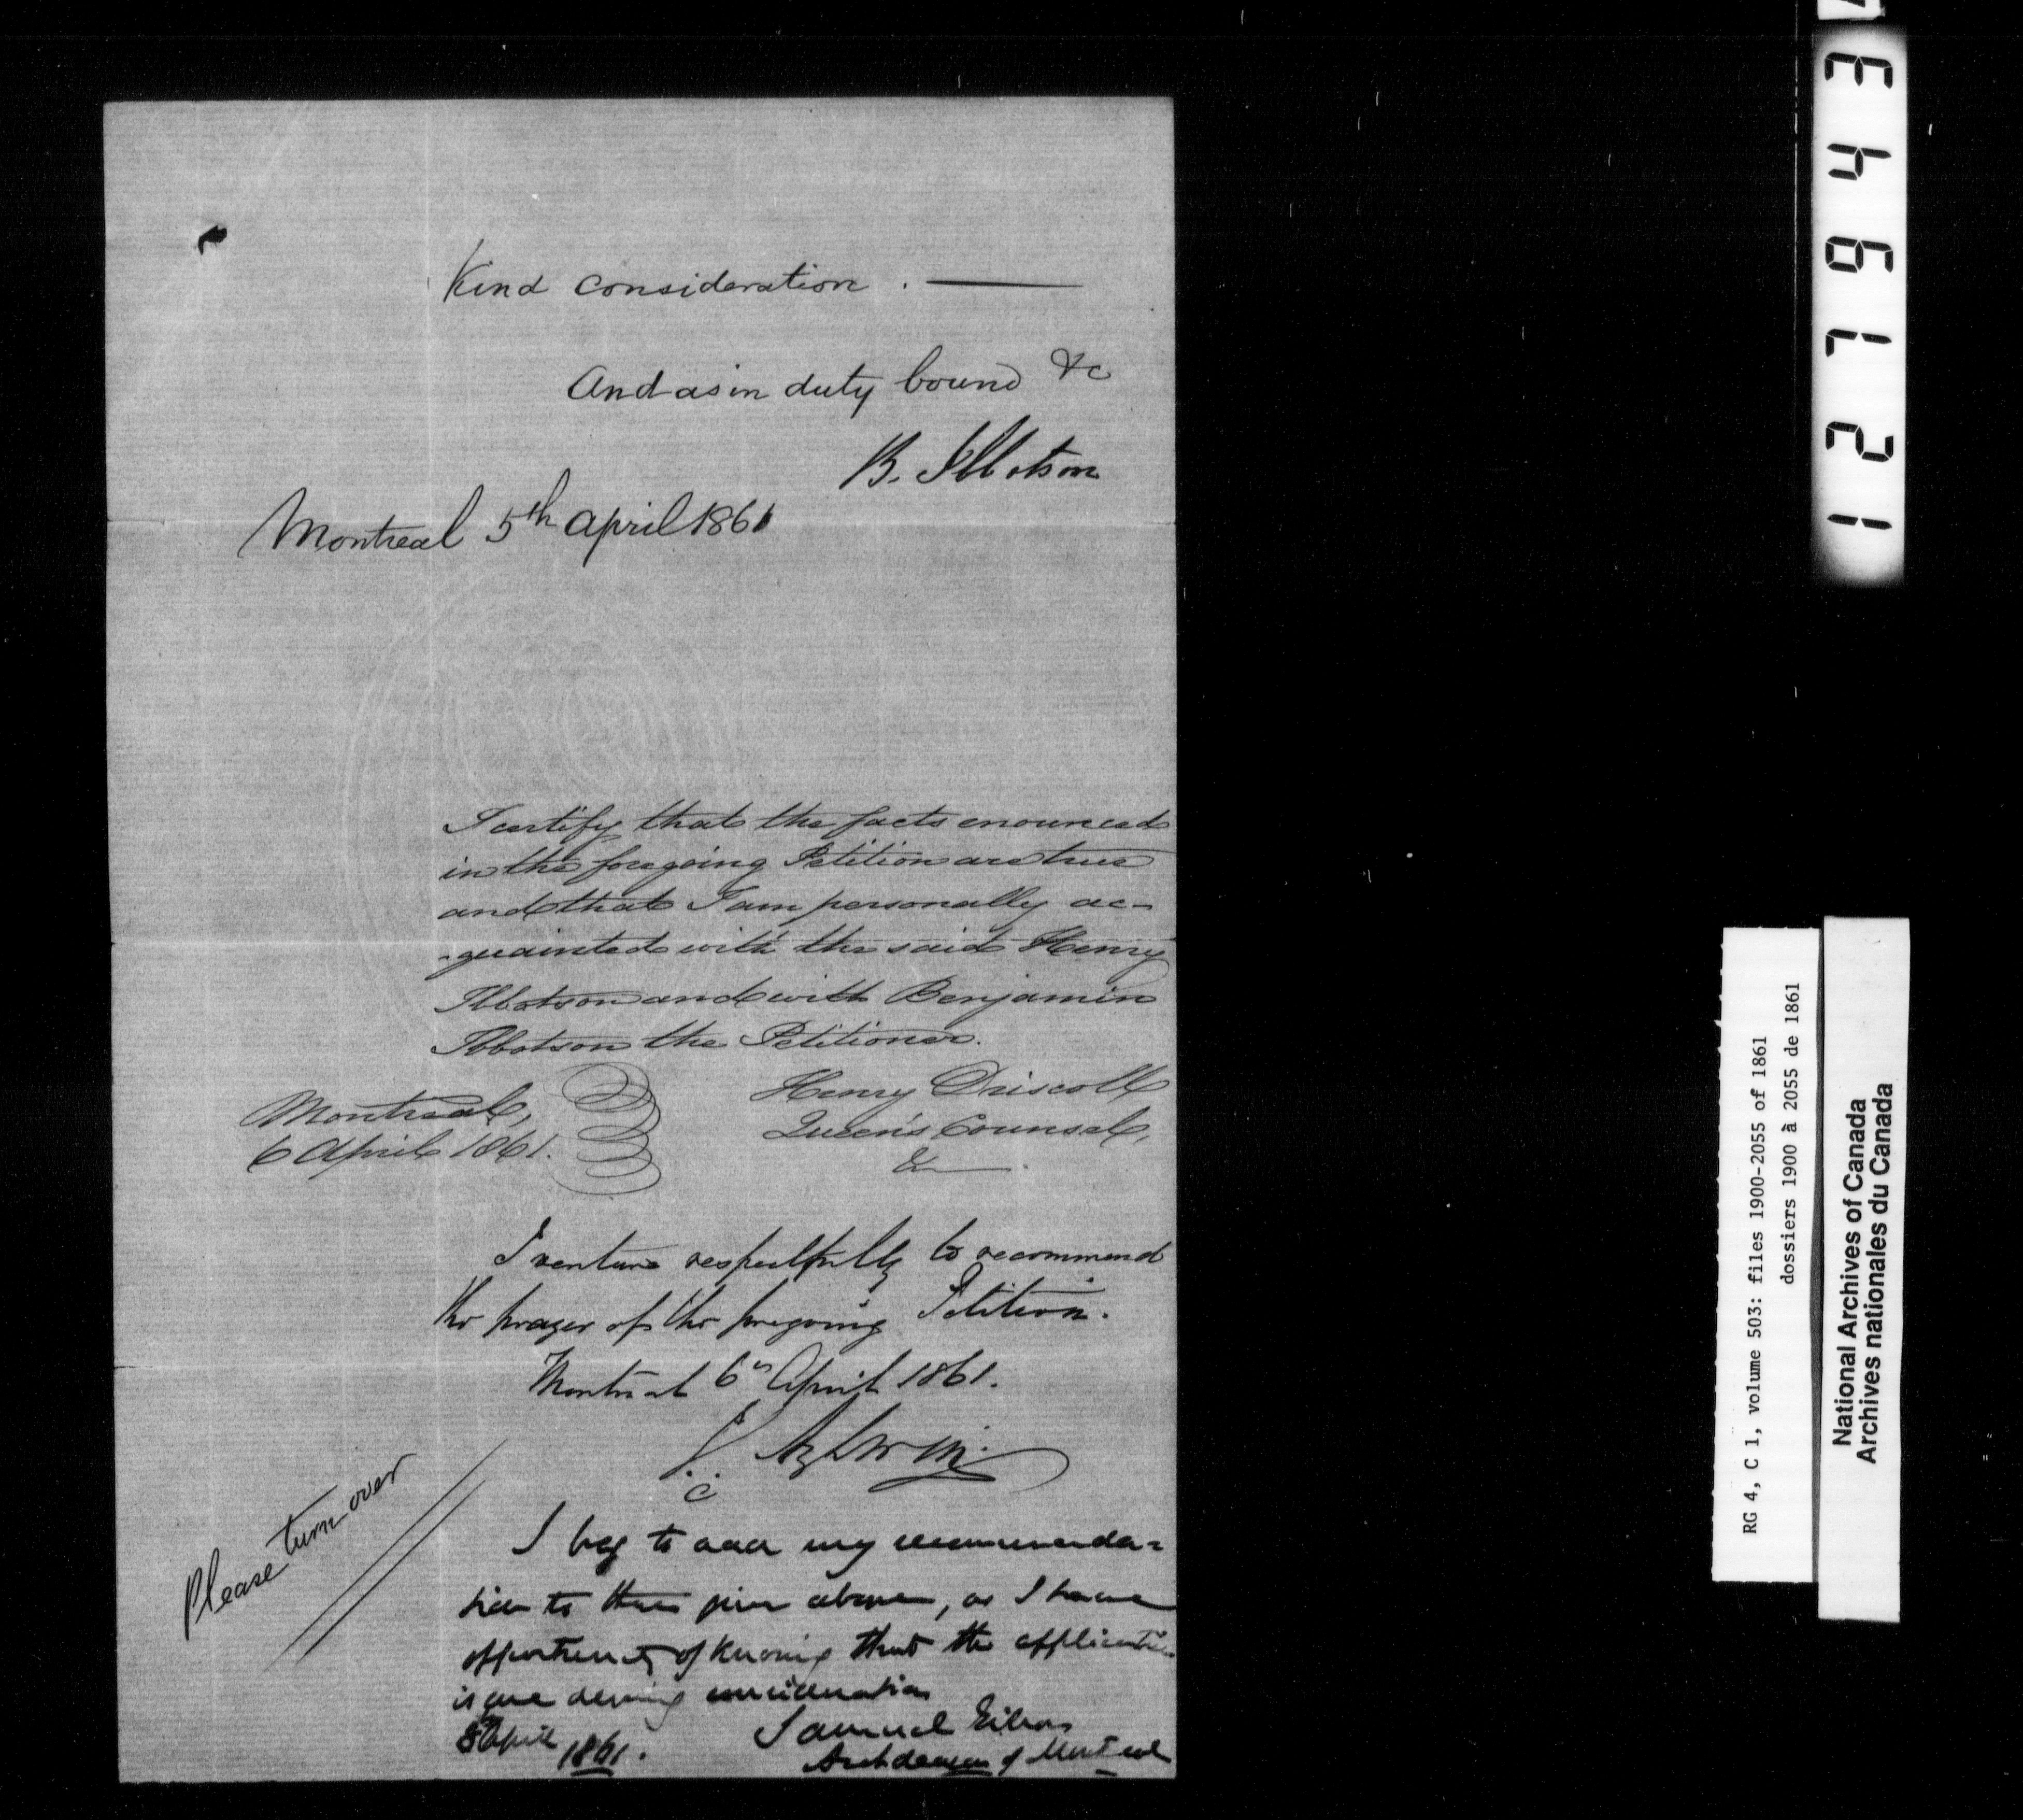 Kind consideration. —
And as in duty bound &c
B. Ibbotson
Montreal 5th April 1861
I certify that the facts enounced
in the foregoing Petition are true
and that I am personally ac-
-quainted with the said Henry
Ibbotson and with Benjamin
Ibbotson the Petitioner.
Henry Driscoll
Queen's Counsel,
&c
Montreal,
6 April 1861.
I venture respectfully to recommend
the prayer of the foregoing Petition.
Montreal 6th April 1861.
I beg to add my recommenda=
tion to those given above, as I have
opportunity of knowing that the application
is one deserving consideration
8 April 1861.
Samuel Gilson
Archdeacon of Montreal
Please turn over
127943
RG 4, C 1, volume 503: files 1900-2055 of 1861
dossiers 1900 à 2055 de 1861
National Archives of Canada
Archives nationales du Canada